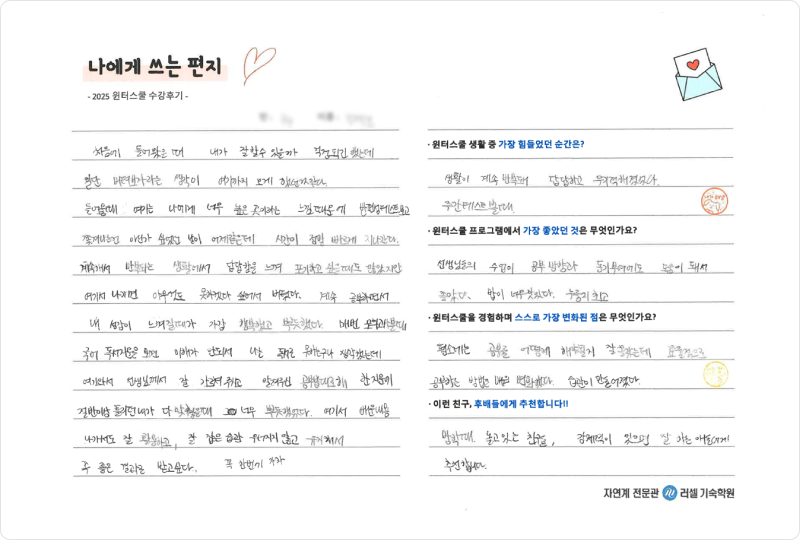 나에게 쓰는 편지
- 2025 윈터스쿨 수강후기 -
처음에 들어왔을 때 내가 잘할수 있을까 걱정되긴 했는데
일단 해보자라는 생각이 여기까지 오게
들어올때 여기는 나에게 너무 높은 곳이라는
시간이 정말 빠르게 지나갔다.
계속해서 반복되는 생활에서 답답함을 느껴 포기하고 싶을때도 많았지만
여기서 나가면 아무것도 못하겠다 싶어서 버텼다. 계속 공부하면서
내 성장이 느껴질때가 가장 행복했고 뿌듯했다. 매번
국어 독서지문을 보면 이해가 안되서 나는
여기와서 선생님께서 잘 가르쳐 주시고 알려주신 한 지문이
절반이상 틀리던 내가 다 맞췄을때 너무 뿌듯했었다. 여기서 배운내용
나가서도 잘 활용하고, 잘 잡은 습관 유지해서
꼭 좋은 결과를 받고싶다. 꼭 한번에 가자
· 윈터스쿨 생활 중 가장 힘들었던 순간은?
생활이 계속 반복돼 답답하고 무기력해졌었다.
주간테스트볼때.
· 윈터스쿨 프로그램에서 가장 좋았던 것은 무엇인가요?
선생님들의 수업이 공부 방향과 동기부여에도 도움이 돼서
좋았다. 밥이 너무맛있다. 누룽지 최고
· 윈터스쿨을 경험하며 스스로 가장 변화된 점은 무엇인가요?
평소에는 공부를 어떻게 해야할지 잘 몰랐는데 효율적으로
공부하는 방법을 배워 변화했다. 습관이 만들어졌다.
· 이런 친구, 후배들에게 추천합니다!!
방학때 놀고있는 친구들, 강제력이 있으면 잘 하는 애들에게
추천합니다.
자연계 전문관 러셀 기숙학원